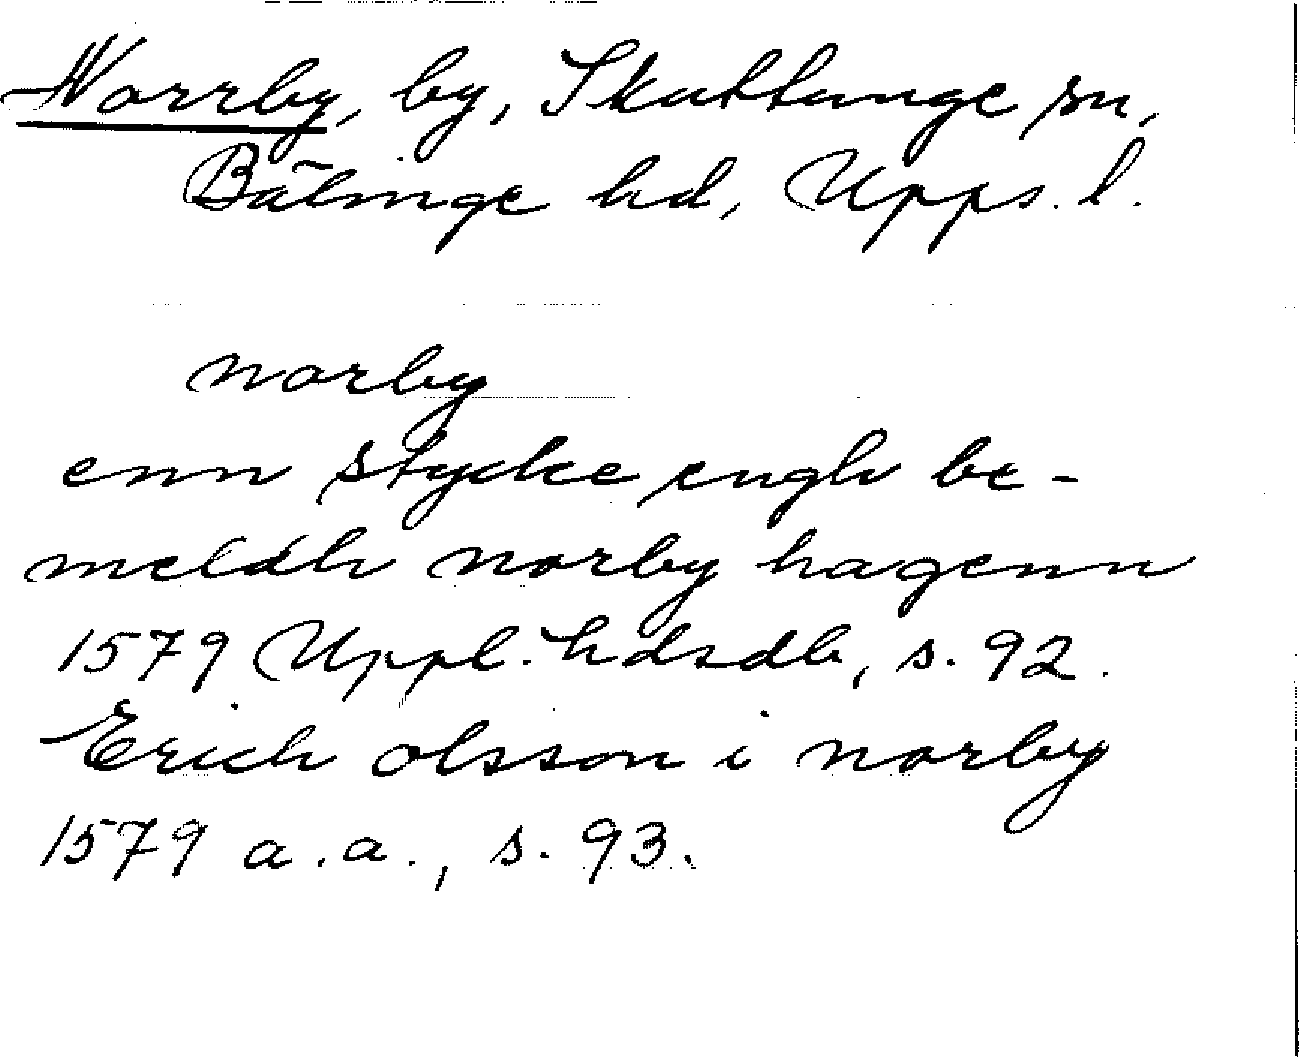 Norrby, by, Skuttunge sn,
Bälinge hd, Upps. l.
norby
enn stycke engh be-
meldh norby hagenn
1579 Uppl. hdsdb, s. 92.
Erich olsson i norby
1579 a.a., s. 93.